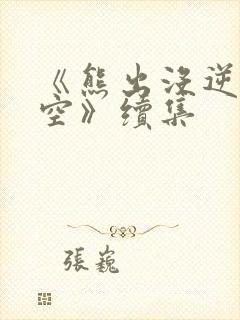 《熊出没逆
空》續集
張巍